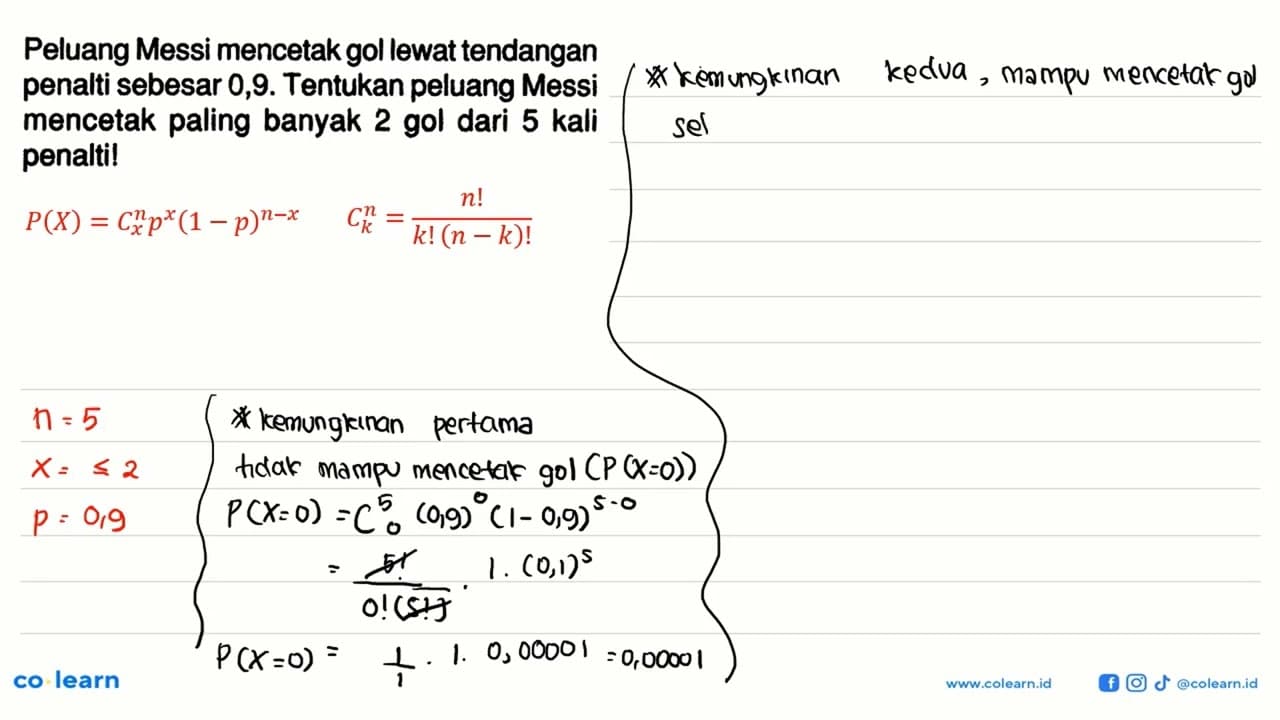 Peluang Messi mencetak gol lewat tendangan
penalti sebesar 0,9. Tentukan peluang Messi
mencetak paling banyak 2 gol dari 5 kali
penalti!
P(X) = C_x^n p^x (1 − p)^{n−x}    C_k^n = n! / k! (n − k)!
n = 5
x = ≤ 2
p = 0,9
* kemungkinan pertama
tidak mampu mencetak gol (P(X=0))
P(X=0) = C_0^5 (0,9)^0 (1 - 0,9)^{5-0}
= 5! / 0! (5!) . 1. (0,1)^5
P(X=0) = 1/1 . 1. 0,00001 = 0,00001
* kemungkinan kedua, mampu mencetak gol
sel
co·learn
www.colearn.id
@colearn.id